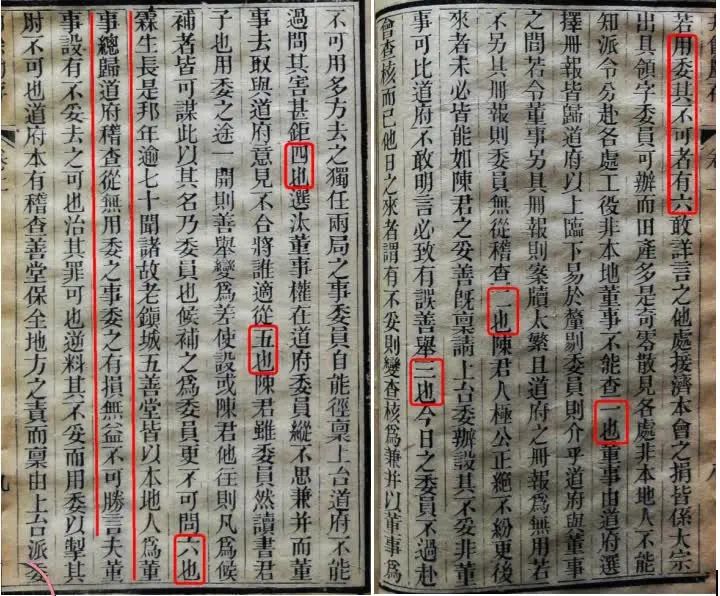 若用委其不可者有六敢詳言之他處接濟本會之捐皆係大宗
出具領字委員可辦而田產多是奇零散見各處非本地人不能
知派令分赴各處工役非本地董事不能查一也董事由道府選
擇冊報皆歸道府以上臨下易於釐剔委員則介乎道府與董事
之間若令董事另具冊報則案牘太繁且道府之冊報爲無用若
不另具冊報則委員無從稽查二也陳君人極公正絕不紛更後
來者未必皆能如陳君之妥善既稟請上台委辦設其不妥非董
事可比道府不敢明言必致有誤善舉三也今日之委員不過赴
會查核而已他日之來者謂有不妥則變查核爲兼并以董事爲
不可用多方去之獨任兩局之事委員自能徑稟上台道府不能
過問其害甚鉅四也選汰董事權在道府委員縱不思兼并而董
事去取與道府意見不合將誰適從五也陳君雖委員然讀書君
子也用委之途一開則善舉變爲差使設或陳君他往則凡爲候
補者皆可謀此以其名乃委員也候補之爲委員更不可問六也
霖生長是邦年逾七十聞諸故老鎮城五善堂皆以本地人爲董
事總歸道府稽查從無用委之事委之有損無益不可勝言夫董
事設有不妥去之可也治其罪可也逆料其不妥而用委以掣其
肘不可也道府本有稽查善堂保全地方之責而稟由上台派委
九